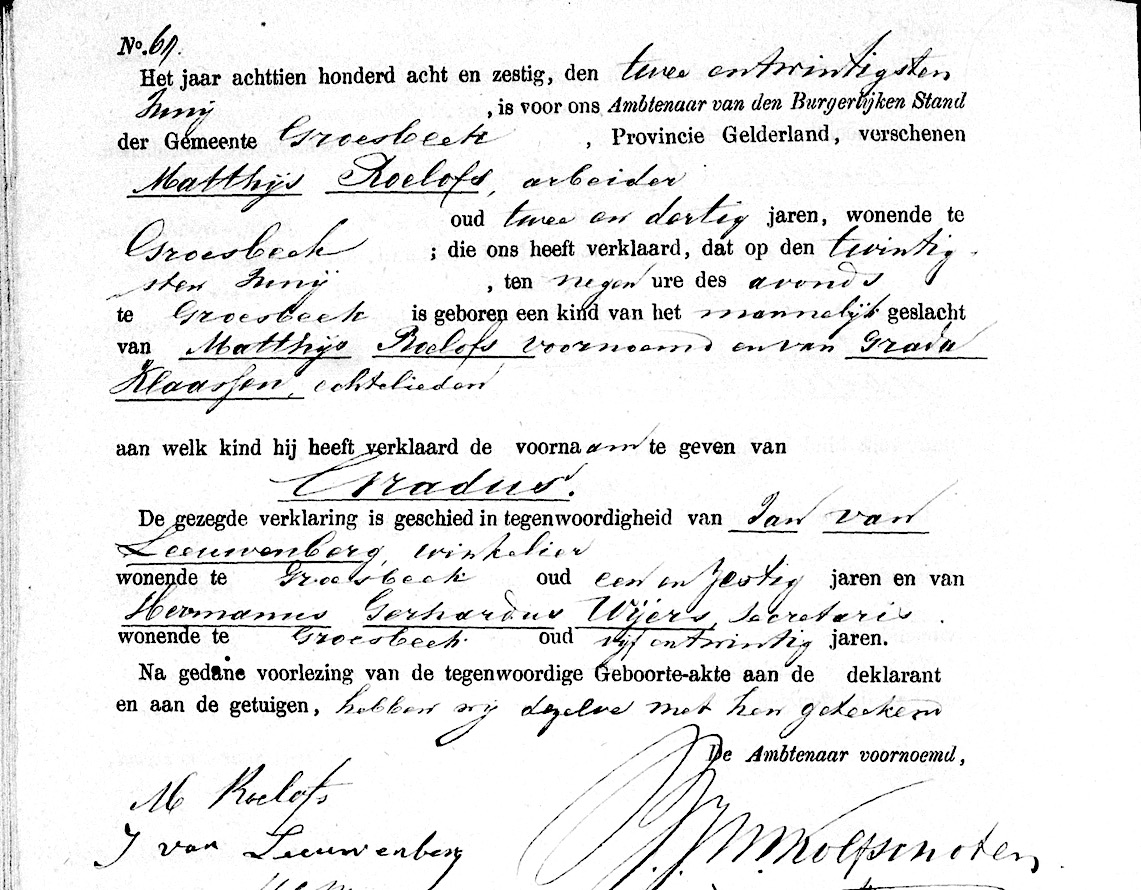 No. 61.
Het jaar achttien honderd acht en zestig, den twee entwintigsten
Junij , is voor ons Ambtenaar van den Burgerlijken Stand
der Gemeente Groesbeek , Provincie Gelderland, verschenen
Matthijs Roelofs, arbeider
oud twee en dertig jaren, wonende te
Groesbeek ; die ons heeft verklaard, dat op den twintig-
sten Junij , ten negen ure des avonds
te Groesbeek is geboren een kind van het mannelijk geslacht
van Matthijs Roelofs voornoemd en van Grada
Klaassen, echtelieden
aan welk kind hij heeft verklaard de voornaam te geven van
Gradus.
De gezegde verklaring is geschied in tegenwoordigheid van Jan van
Leeuwenberg, winkelier
wonende te Groesbeek oud een en zestig jaren en van
Hermanus Gerhardus Wijers, secretaris
wonende te Groesbeek oud vijf entwintig jaren.
Na gedane voorlezing van de tegenwoordige Geboorte-akte aan de deklarant
en aan de getuigen, hebben wij dezelve met hen geteekend
De Ambtenaar voornoemd,
M Roelofs
J van Leeuwenberg